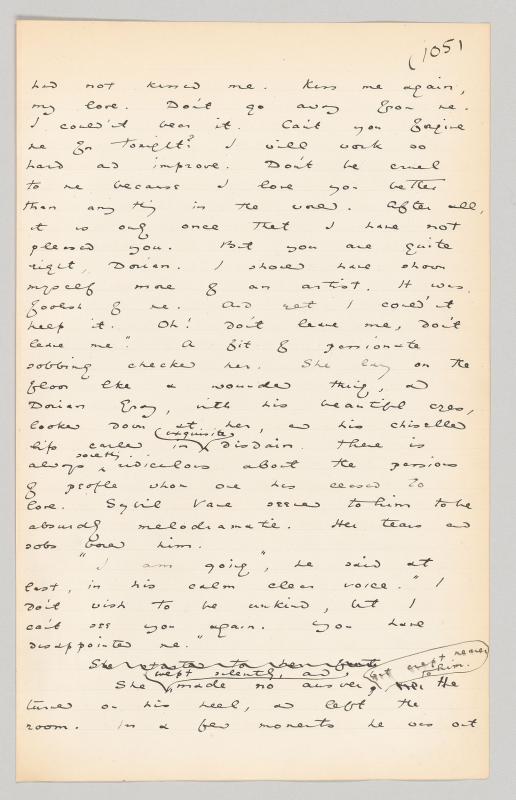 (1051
had not kissed me. Kiss me again,
my love. Don't go away from me.
I couldn't bear it. Can't you forgive
me for tonight? I will work so
hard and improve. Don't be cruel
to me because I love you better
than any thing in the world. After all,
it is only once that I have not
pleased you. But you are quite
right, Dorian. I should have shown
myself more of an artist. It was
foolish of me. And yet I couldn't
help it. Oh! don't leave me, don't
leave me". A fit of passionate
sobbing checked her. She lay on the
floor like a wounded thing, and
Dorian Gray, with his beautiful eyes,
looked down at her, and his chiselled
exquisite
lips curled in disdain. There is
something
always ridiculous about the passions
of people whom one has ceased to
love. Sybil Vane seemed to him to be
absurdly melodramatic. Her tears and
sobs bored him.
"I am going", he said at
last, in his calm clear voice. "I
don't wish to be unkind, but I
can't see you again. You have
disappointed me."
She started to her feet
wept silently, and
but crept nearer to him.
She made no answer, He
turned on his heel, and left the
room. In a few moments he was out